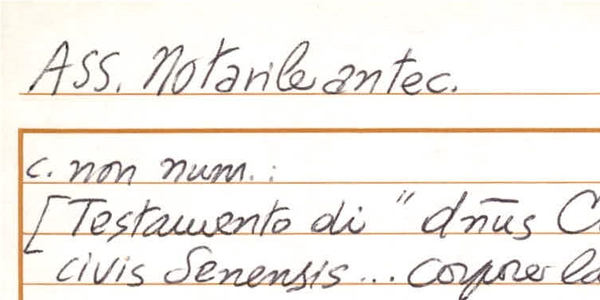 Ass. Notarile antec.
c. non num.:
[Testamento di " dn̄us C
civis Senensis ... corpore la